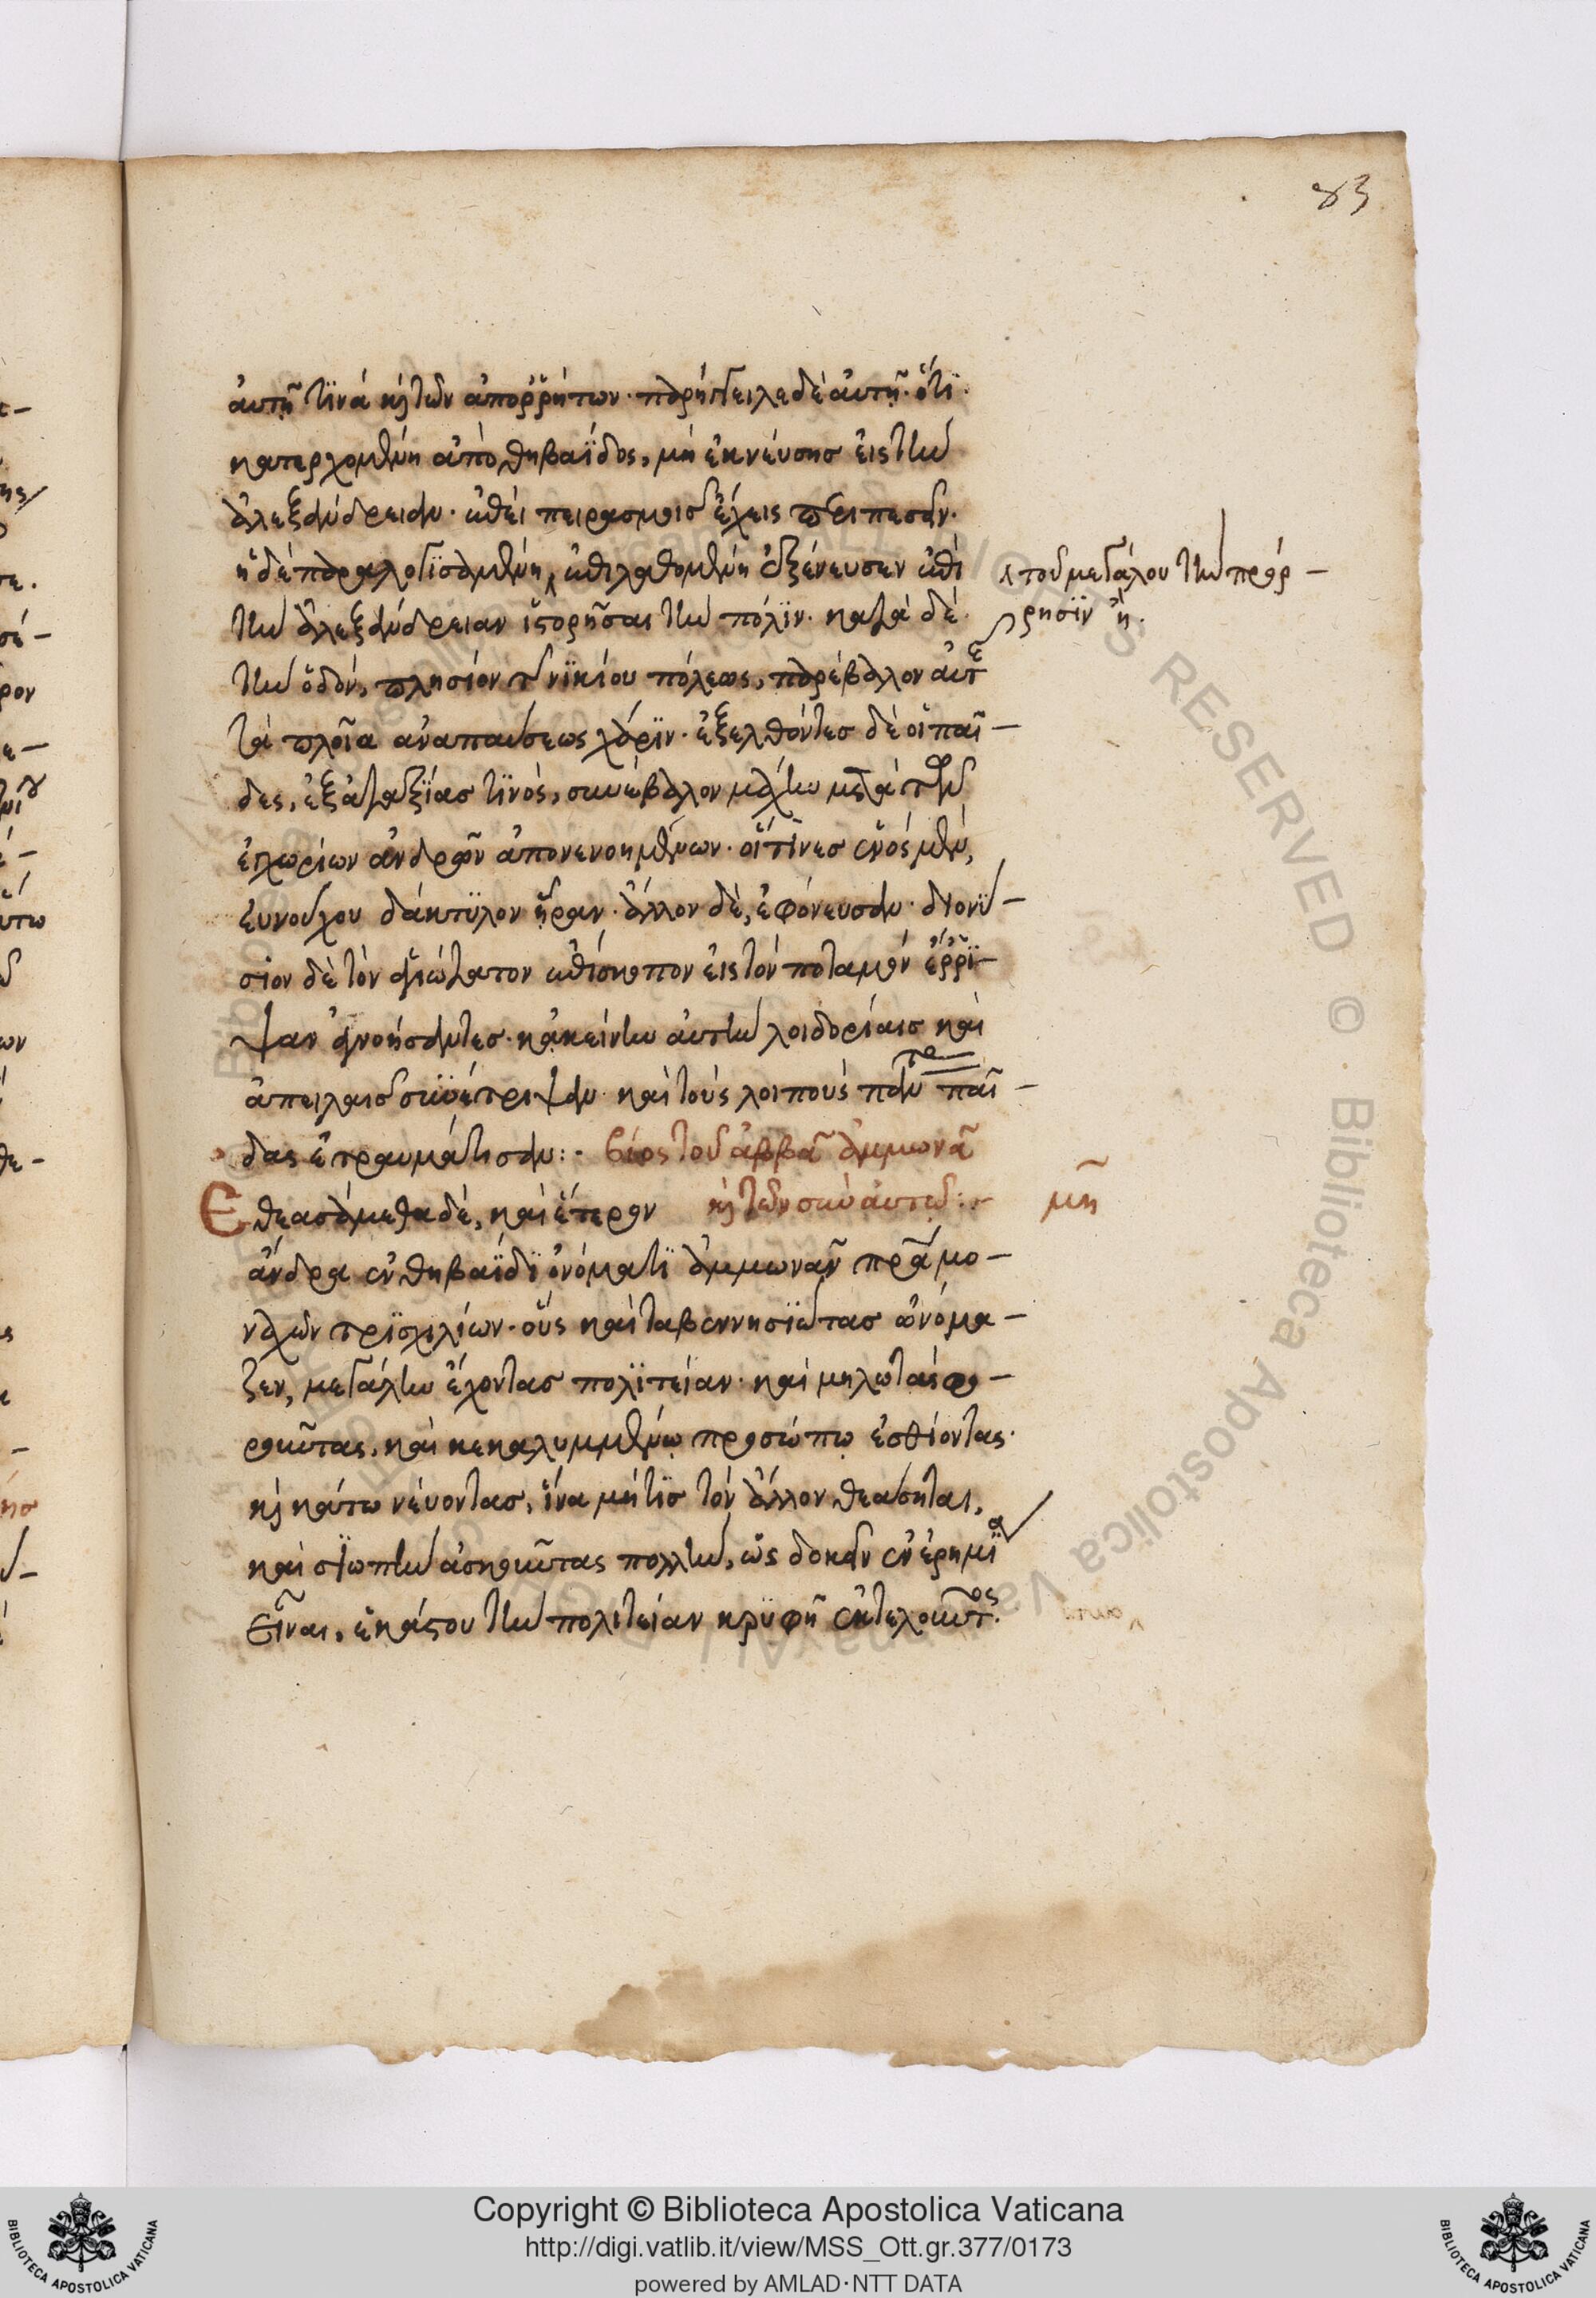 83
αὐτῆ τϊνὰ κ͵ τῶν ἀπορρήτων· παρήγγειλε δὲ αὐτῆ· ὅτϊ·
κατερχομένη ἀπὸ θηβαΐδος, μὴ ἐκνεύσησ εἰς τὴν
ἀλεξάνδρειαν· ἐπεὶ πειρασμοῖσ ἔχεις περιπεσεῖν·
ἡ δὲ παραλογϊσαμένη, ἐπιλαθομένη ἐξένευσεν ἐπὶ
τοῦ μεγάλου τὴν πρόρ-
ρησϊν ἢ.
τὴν ἀλεξάνδρειαν ἱστορῆσαι τὴν πόλϊν· κατὰ δὲ
τὴν ὁδὸν, πλησίον τῆς νϊκίου πόλεως, παρέβαλον αὐτῆς
τὰ πλοῖα ἀναπαύσεως χάρϊν· ἐξελθόντεσ δὲ οἱ παῖ-
δες, ἐξ ἀταξίας τϊνὸς, συνέβαλον μάχην μετὰ τῶν
ἐγχωρίων ἀνδρῶν ἀπονενοημένων· οἵτϊνεσ ἑνὸς μὲν,
εὐνούχου δάκτϋλον ἦραν· ἄλλον δὲ, ἐφόνευσαν· διονϋ-
σϊον δὲ τὸν ἁγιώτατον ἐπίσκοπον εἰς τὸν ποταμὸν ἔρρϊ-
ψαν ἀγνοήσαντεσ· κἀκείνην αὐτὴν λοιδορίαισ καὶ
ἀπειλαῖσ συνέτριψαν καὶ τοὺς λοιποὺς πάντας παῖ-
δας ἐτραυμάτισαν:· βίος τοῦ ἀββᾶ ἀμμωνᾶ
Ἐθεασάμεθα δὲ, καὶ ἕτερον κ͵ τῶν σὺν αὐτῷ:· μη
ἄνδρα ἐν θηβαΐδϊ ὀνόματϊ ἀμμωνᾶν πρᾶ μο-
ναχῶν τρϊσχιλίων· οὓς καὶ ταβεννησϊώτασ ὠνόμα-
ζεν, μεγάλην ἔχοντασ πολϊτείαν· καὶ μηλωτὰς φο-
ροῦντας, καὶ κεκαλυμμένῳ προσώπῳ ἐσθίοντας·
κ͵ κάτω νεύοντασ, ἵνα μήτϊσ τὸν ἄλλον θεάσηται,
καὶ σϊωπὴν ἀσκοῦντας πολλὴν, ὡς δοκεῖν ἐν ἐρημίᾳ
εἶναι, ἑκάστου τὴν πολιτείαν κρϋφῆ ἐκτελοῦντος·
Copyright © Biblioteca Apostolica Vaticana
http://digi.vatlib.it/view/MSS_Ott.gr.377/0173
powered by AMLAD·NTT DATA
BIBLIOTECA APOSTOLICA VATICANA
BIBLIOTECA APOSTOLICA VATICANA